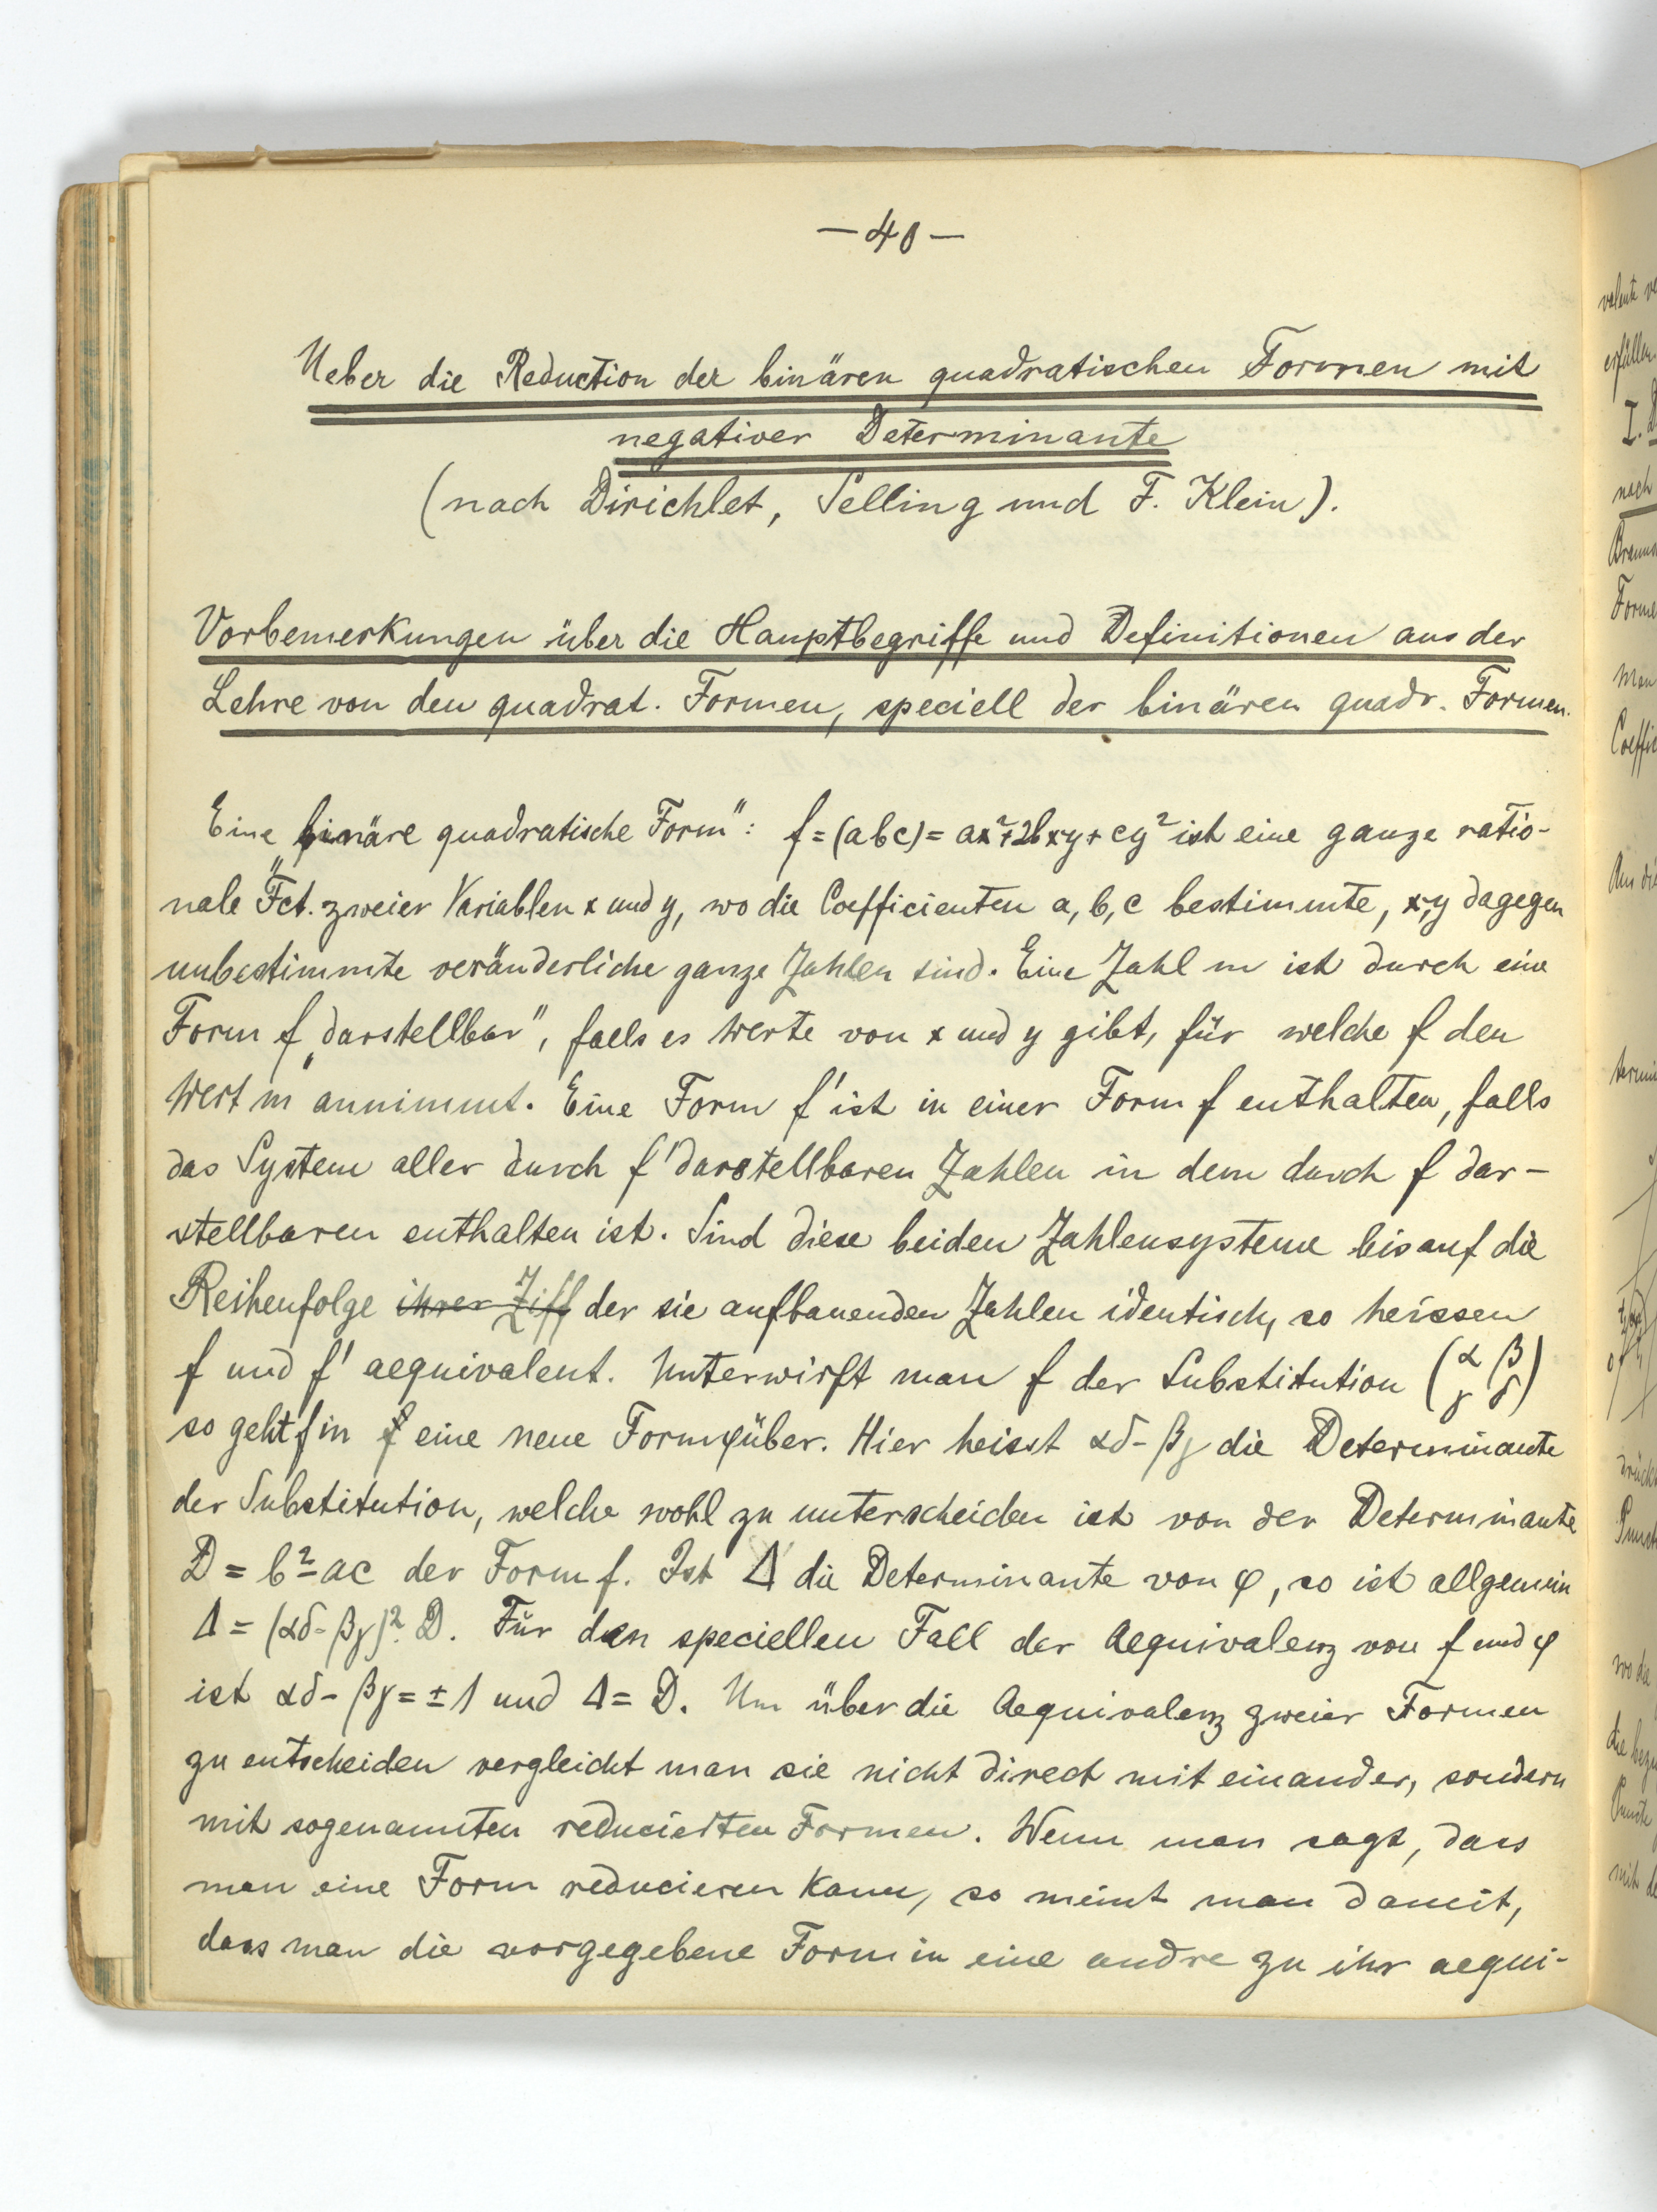 — 40 —
Ueber die Reduction der binären quadratischen Formen mit
negativer Determinante
(nach Dirichlet, Selling und F. Klein).
Vorbemerkungen über die Hauptbegriffe und Definitionen aus der
Lehre von den quadrat. Formen, speciell der binären quadr. Formen.
Eine „binäre quadratische Form": f = (abc) = ax²+2bxy+cy² ist eine ganze ratio-
nale Fct. zweier Variablen x und y, wo die Coefficienten a, b, c bestimmte, x,y dagegen
unbestimmte veränderliche ganze Zahlen sind. Eine Zahl m ist durch eine
Form f „darstellbar", falls es Werte von x und y gibt, für welche f den
Wert m annimmt. Eine Form f' ist in einer Form f enthalten, falls
das System aller durch f' darstellbaren Zahlen in dem durch f dar-
stellbaren enthalten ist. Sind diese beiden Zahlensysteme bis auf die
Reihenfolge ihrer Ziff der sie aufbauenden Zahlen identisch, so heissen
f und f' aequivalent. Unterwirft man f der Substitution (α β
γ δ)
so geht f in f eine neue Form φ über. Hier heisst αδ-βγ die Determinante
der Substitution, welche wohl zu unterscheiden ist von der Determinante
D = b²-ac der Form f. Ist Δ die Determinante von φ, so ist allgemein
Δ = (αδ-βγ)².D. Für den speciellen Fall der Aequivalenz von f und φ
ist αδ-βγ = ±1 und Δ = D. Um über die Aequivalenz zweier Formen
zu entscheiden vergleicht man sie nicht direct mit einander, sondern
mit sogenannten reducierten Formen. Wenn man sagt, dass
man eine Form reducieren kann, so meint man damit,
dass man die vorgegebene Form in eine andre zu ihr aequi-